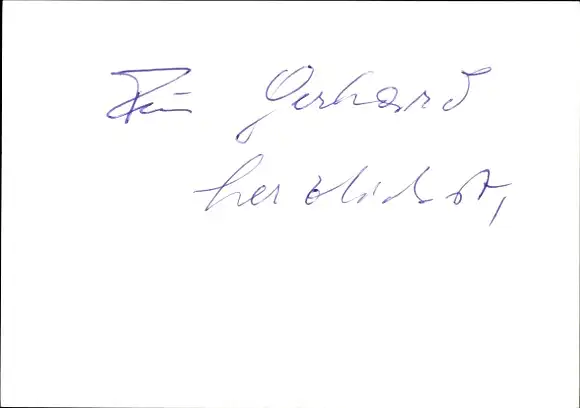 Für Gerhard
herzlichst,